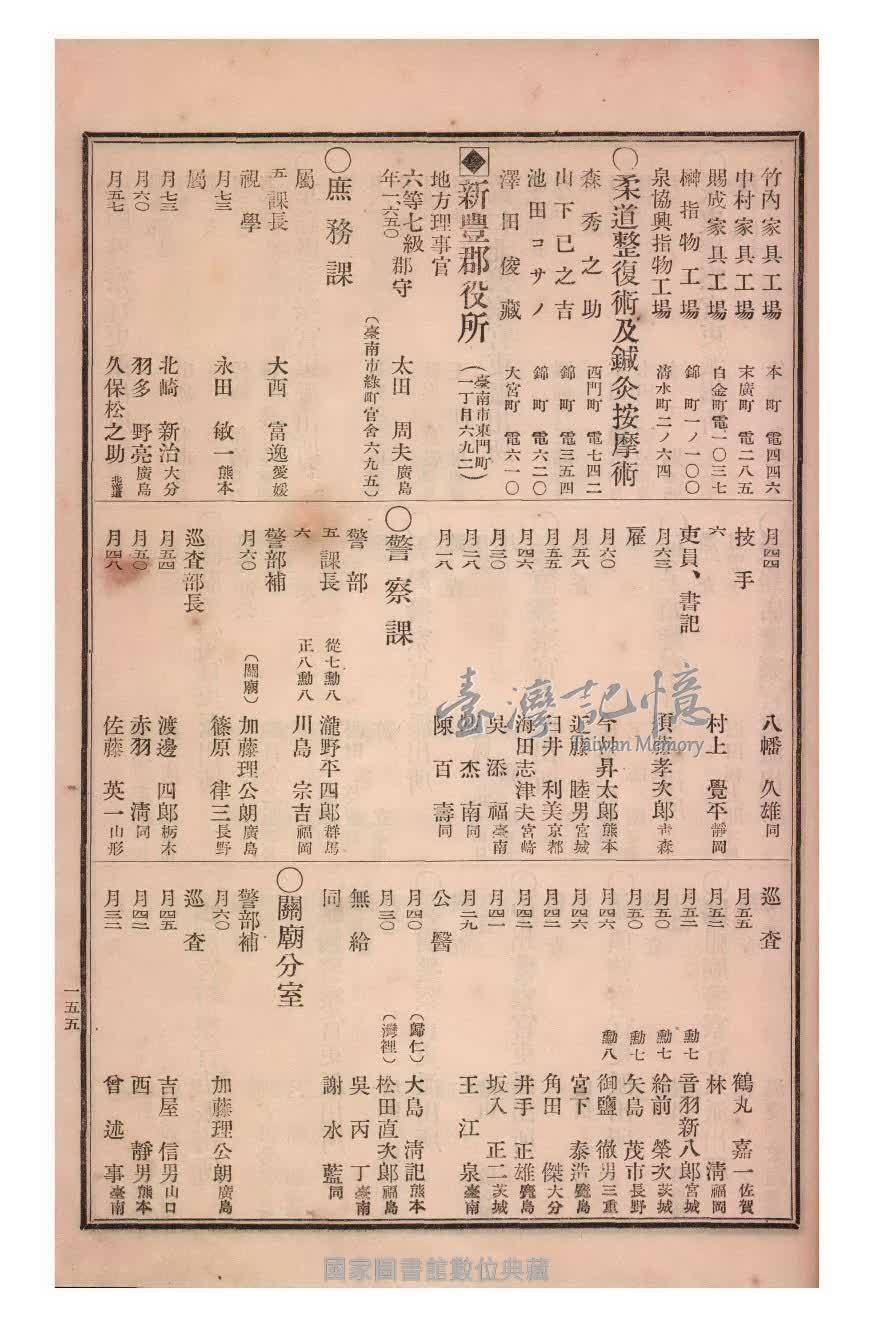 竹內家具工場 本町 電四四六
中村家具工場 末廣町 電二八五
賜成家具工場 白金町電一〇三七
榊指物工場 錦町一ノ一〇〇
泉協興指物工場 淸水町二ノ六四
〇柔道整復術及鍼灸按摩術
森秀之助 西門町 電七四二
山下已之吉 錦町 電三五四
池田コサノ 錦町 電六二〇
澤田俊藏 大宮町 電六一〇
新豐郡役所 (臺南市東門町一丁目六九二)
地方理事官
六等七級 郡守 太田 周夫 廣島
年一、六五〇
(臺南市綠町官舍六九五)
〇庶務課
屬
五 課長 大西 富逸 愛媛
視學
月七三 永田 敏一 熊本
屬
月七三 北崎 新治 大分
月六〇 羽多野亮 廣島
月五七 久保松之助 北海道
月四四 八幡 久雄 同
技手
六 村上 覺平 靜岡
吏員、書記
月六三 須藤孝次郎 靑森
雇
月六〇 今村昇太郎 熊本
月五八 近藤 睦男 宮城
月五五 臼井 利美 京都
月四六 海田志津夫 宮崎
月三〇 吳添福 臺南
月二八 杰南 同
月一八 陳百壽 同
〇警察課
警部
五 課長 從七勳八 瀧野平四郞 群馬
六 正八勳八 川島 宗吉 福岡
警部補
(關廟) 加藤理公朗 廣島
月六〇 篠原 律三 長野
巡査部長
月五四 渡邊 四郞 栃木
月五〇 赤羽 淸 同
月四八 佐藤 英一 山形
巡査
月五五 鶴丸 嘉一 佐賀
月五三 林 淸 福岡
月五二 勳七 音羽新八郞 宮城
月五〇 勳七 給前 榮次 茨城
月五〇 勳七 矢島 茂市 長野
月四六 勳八 御鹽 徹男 三重
月四六 宮下 泰浩 鹿兒島
月四二 角田 傑 大分
月四二 井手 正雄 鹿兒島
月四一 坂入 正二 茨城
月二九 王江泉 臺南
公醫
月四〇 (歸仁) 大島 淸記 熊本
月三〇 (灣裡) 松田直次郞 福島
無給 吳丙丁 臺南
同 謝水藍 同
〇關廟分室
警部補
月六〇 加藤理公朗 廣島
巡査
月四五 吉屋 信男 山口
月四二 西 靜男 熊本
月三二 曾述事 臺南
一五五
臺灣記憶
Taiwan Memory
國家圖書館數位典藏